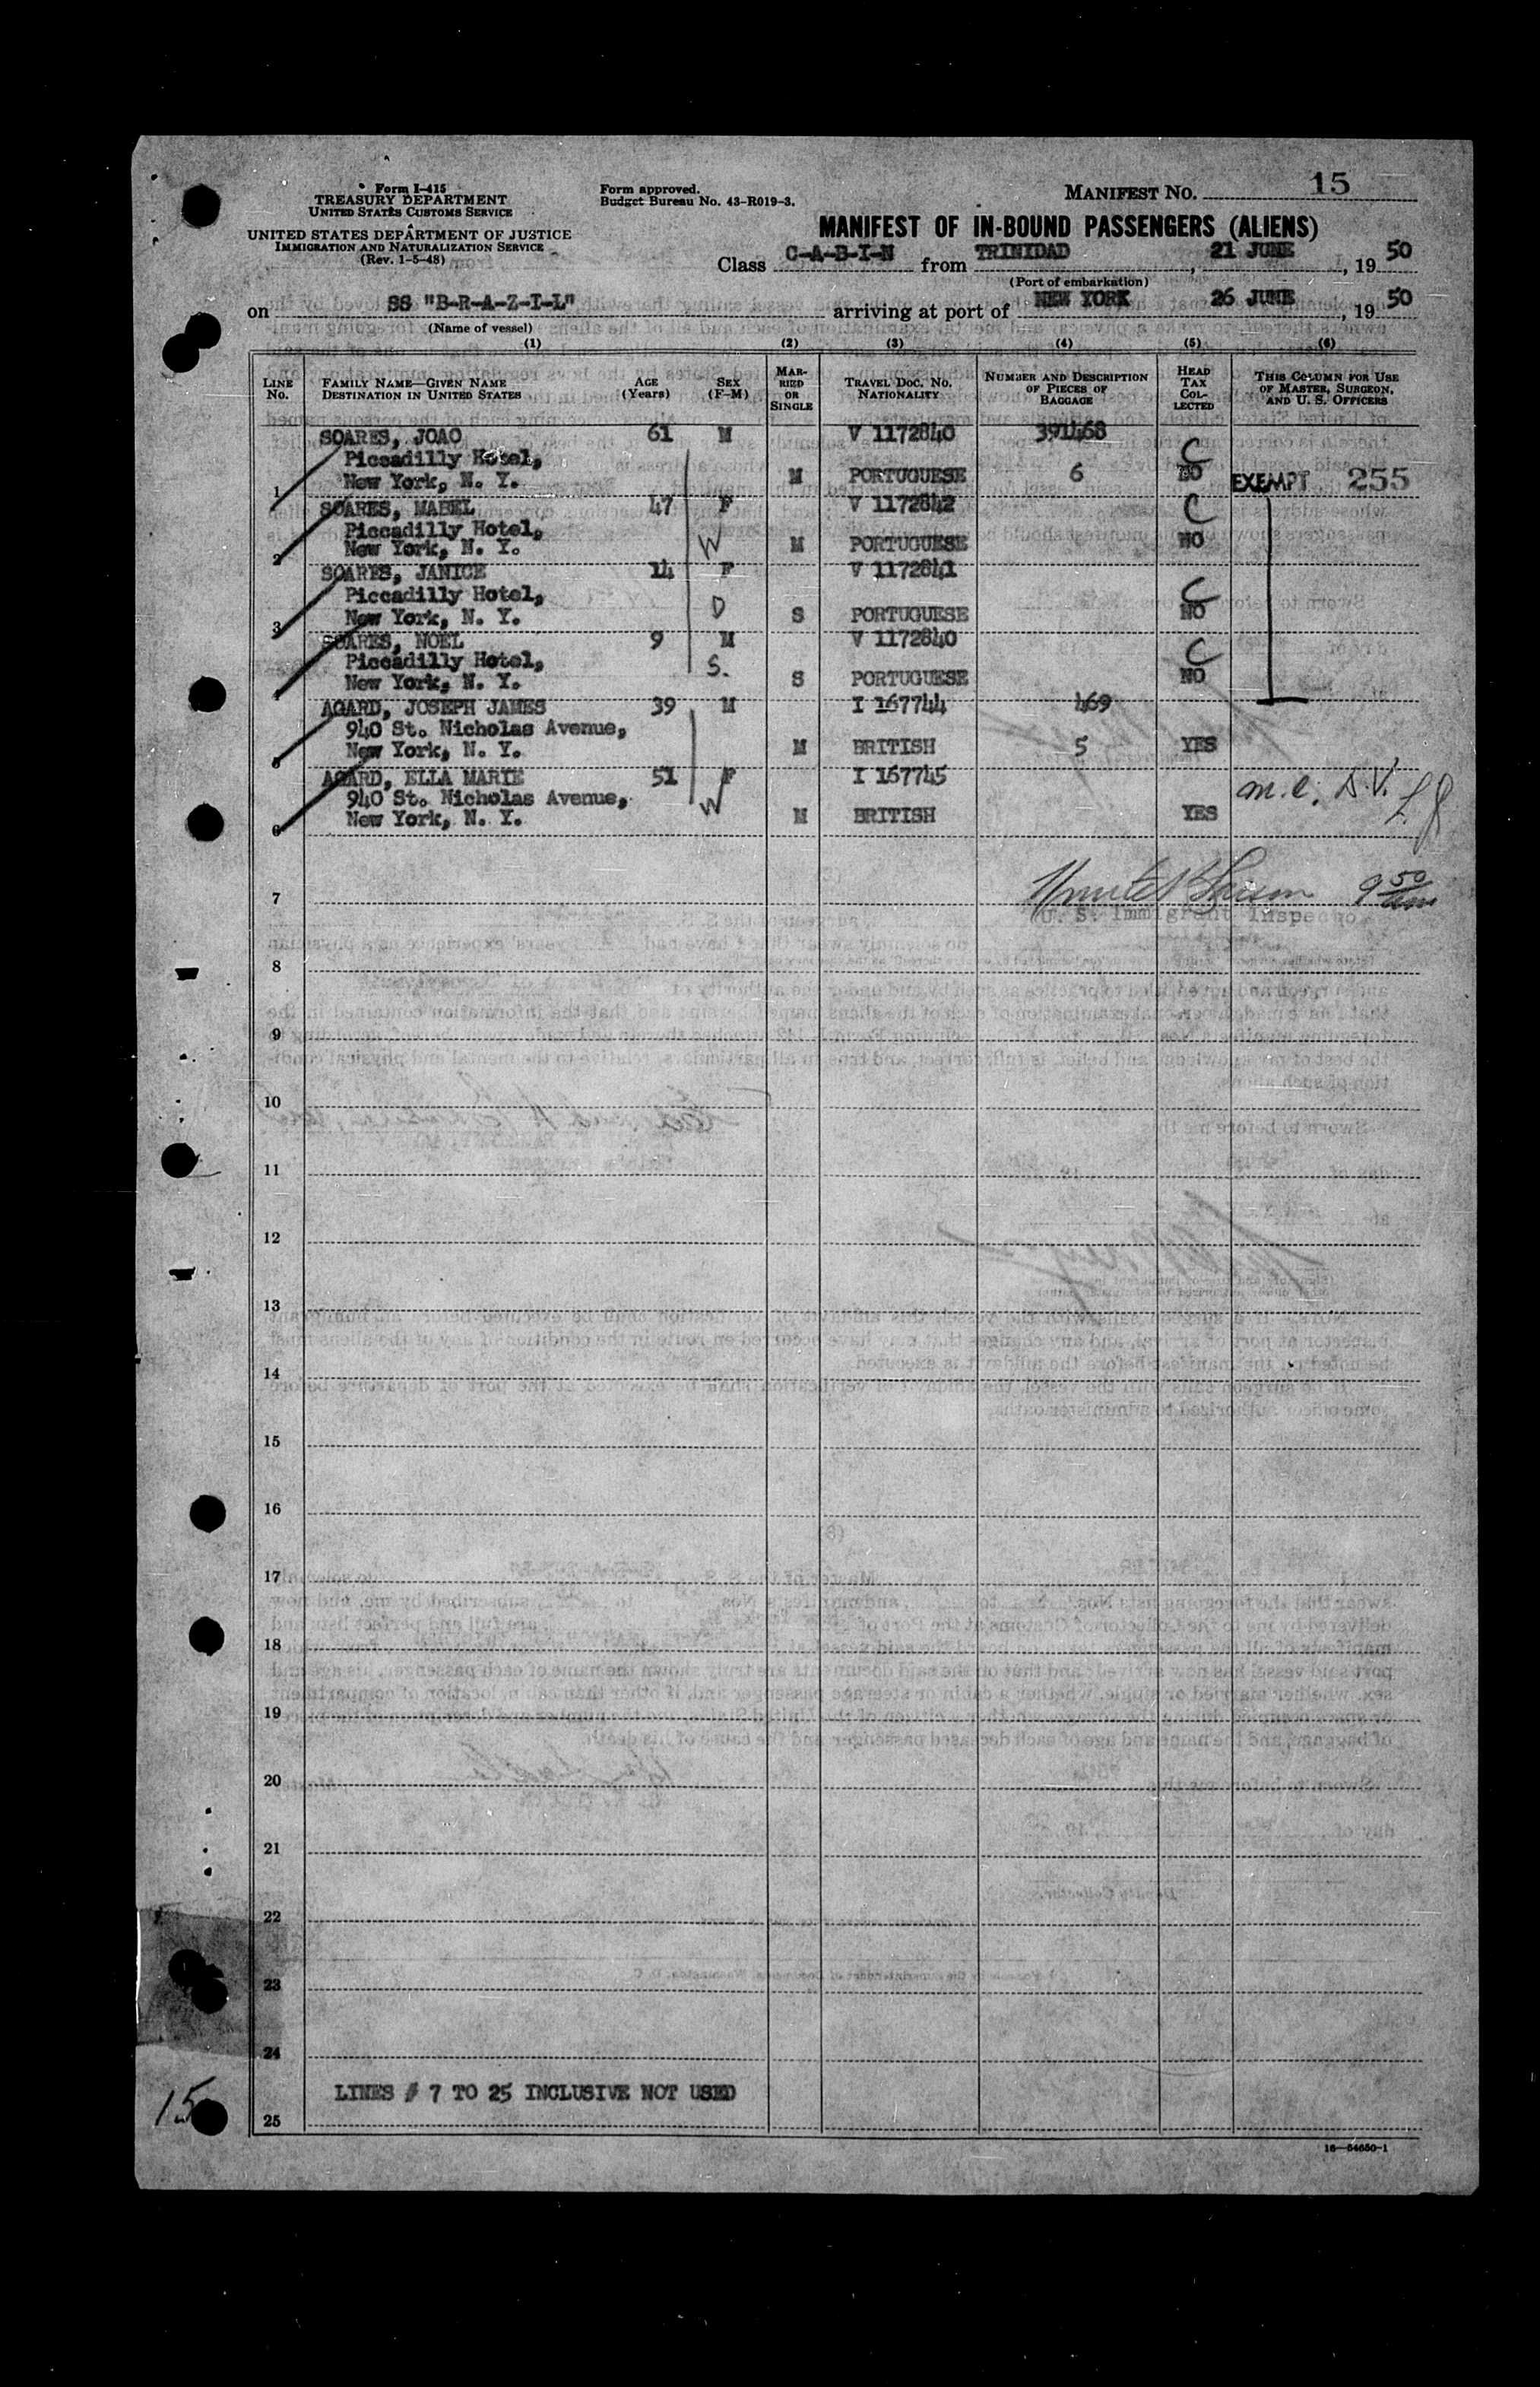 Form I-415
TREASURY DEPARTMENT
UNITED STATES CUSTOMS SERVICE
UNITED STATES DEPARTMENT OF JUSTICE
IMMIGRATION AND NATURALIZATION SERVICE
(Rev. 1-5-48)
Form approved.
Budget Bureau No. 43-R019-3.
MANIFEST NO. 15
MANIFEST OF IN-BOUND PASSENGERS (ALIENS)
Class C-A-B-I-N from TRINIDAD, 21 JUNE, 19 50
(Port of embarkation)
on SS "B-R-A-Z-I-L" arriving at port of NEW YORK 26 JUNE, 19 50
(Name of vessel)
(1) (2) (3) (4) (5) (6)
LINE No. FAMILY NAME—GIVEN NAME DESTINATION IN UNITED STATES AGE (Years) SEX (F-M) MARRIED OR SINGLE TRAVEL DOC. NO. NATIONALITY NUMBER AND DESCRIPTION OF PIECES OF BAGGAGE HEAD TAX COLLECTED THIS COLUMN FOR USE OF MASTER, SURGEON, AND U. S. OFFICERS
SOARES, JOAO 61 M V 1172840 391468 C
Piccadilly Hotel,
1 New York, N. Y. M PORTUGUESE 6 NO EXEMPT 255
SOARES, MABEL 47 F V 1172842 C
Piccadilly Hotel,
2 New York, N. Y. W M PORTUGUESE NO
SOARES, JANICE 14 F V 1172841 C
Piccadilly Hotel,
3 New York, N. Y. D S PORTUGUESE NO
SOARES, NOEL 9 M V 1172840 C
Piccadilly Hotel,
4 New York, N. Y. S. S PORTUGUESE NO
AGARD, JOSEPH JAMES 39 M I 167744 469
940 St. Nicholas Avenue,
5 New York, N. Y. M BRITISH 5 YES
AGARD, ELLA MARIE 51 F I 167745
940 St. Nicholas Avenue,
6 New York, N. Y. W M BRITISH YES
7 9 50 am
U. S. Immigrant Inspector
8
9
10
11
12
13
14
15
16
17
18
19
20
21
22
23
24
LINES # 7 TO 25 INCLUSIVE NOT USED
25
15
16—54650-1